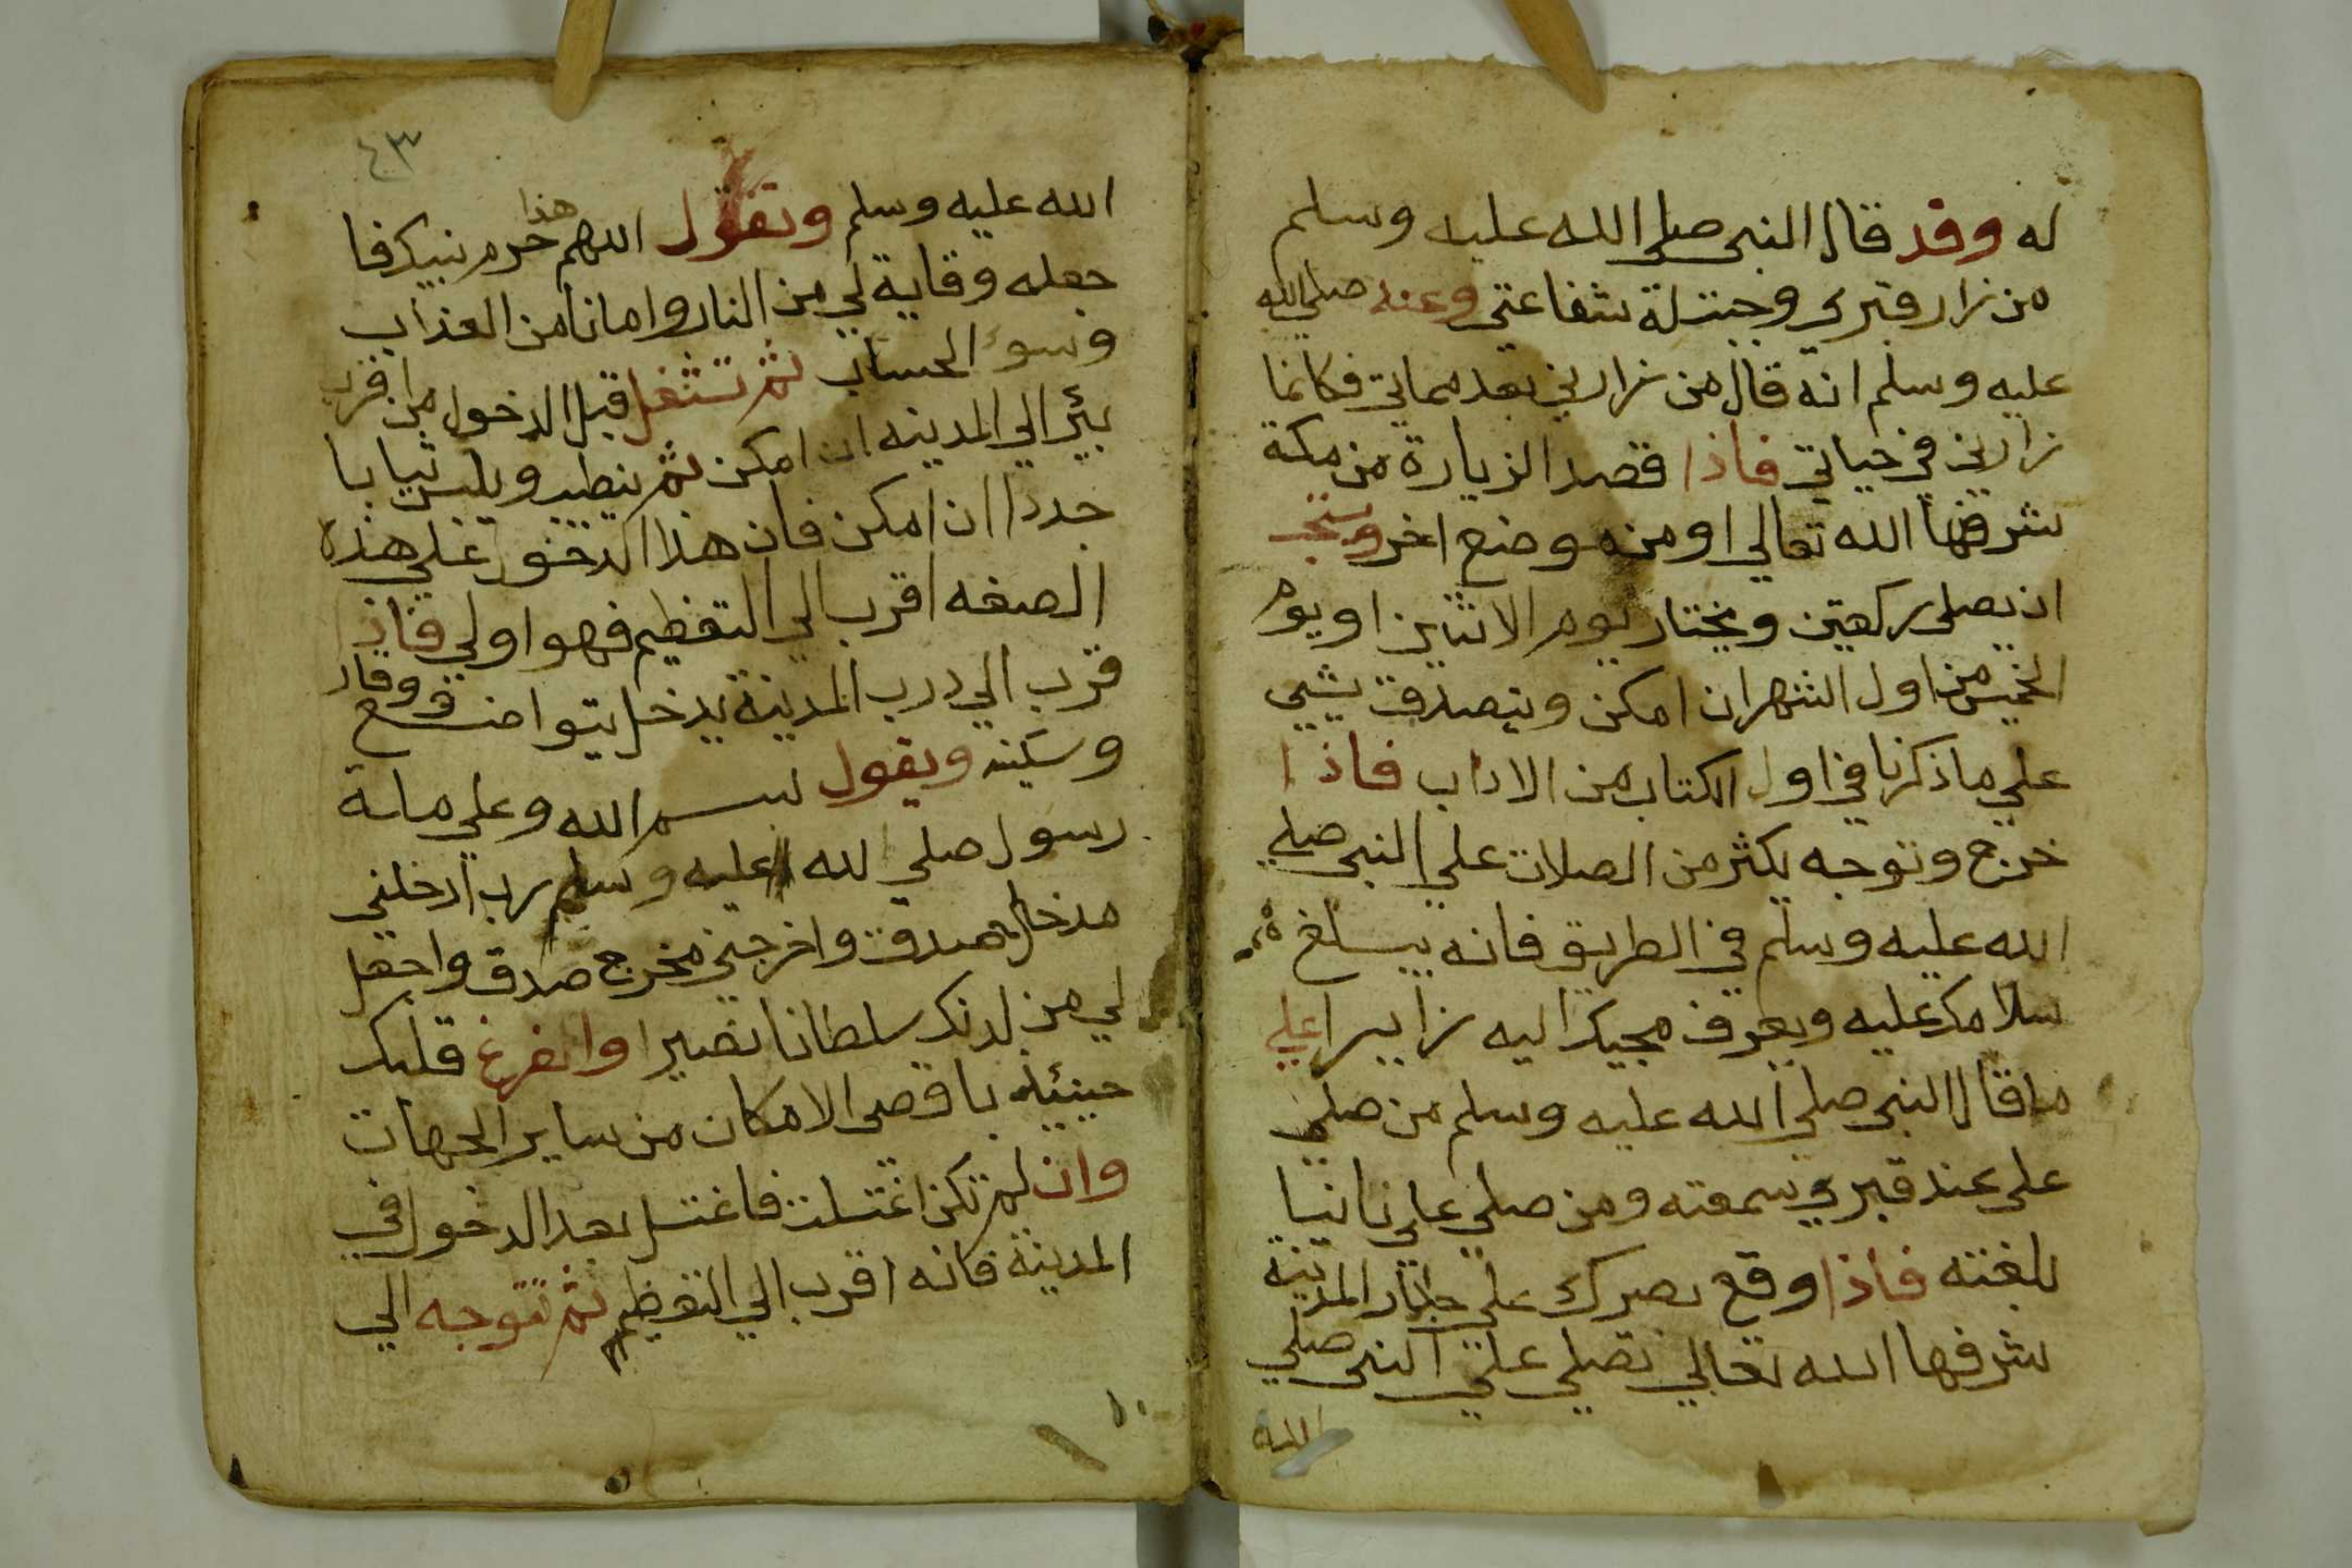 له وقد قال النبي صلي الله عليه وسلم
من زار قبري وجبت له شفاعتي وعنه صلي الله
عليه وسلم انه قال من زارني بعد مماتي فكانما
زارني في حياتي فاذا قصد الزيارة من مكة
شرفها الله تعالي او من موضع اخر ويستحب
ان يصلي ركعتين ويختار يوم الاثنين او يوم
الخميس من اول الشهر ان امكن ويتصدق بشيي
علي ما ذكرنا في اول الكتاب من الاداب فاذا
خرج وتوجه يكثر من الصلات علي النبي صلي
الله عليه وسلم في الطريق فانه يبلغ
سلامك عليه ويعرف مجيك اليه زايرا علي
ما قال النبي صلي الله عليه وسلم من صلي
علي عند قبري سمعته ومن صلي علي نائيا
بلغته فاذا وقع بصرك علي جدار المدينة
شرفها الله تعالي تصلي علي النبي صلي
الله
٤٣
الله عليه وسلم وتقول اللهم هذا حرم نبيك فا
جعله وقاية لي من النار وامانا من العذاب
وسوء الحساب ثم تشتغل قبل الدخول من اقرب
بئر الي المدينه ان امكن ثم يتطيب ويلبس ثيابا
جددا ان امكن فان هذا الدخول علي هذه
الصفه اقرب الي التعظيم فهو اولي فاذا
قرب الي درب المدينة يدخل بتواضع ووقار
وسكينه ويقول بسم الله وعلي ملة
رسول صلي الله عليه وسلم رب ادخلني
مدخل صدق واخرجني مخرج صدق واجعل
لي من لدنك سلطانا نصيرا وا تفرغ قلبك
حينيئذ باقصي الامكان من ساير الجهات
وان لم تكن اغتسلت فاغتسل بعد الدخول في
المدينة فانه اقرب الي التعظيم ثم تتوجه الي